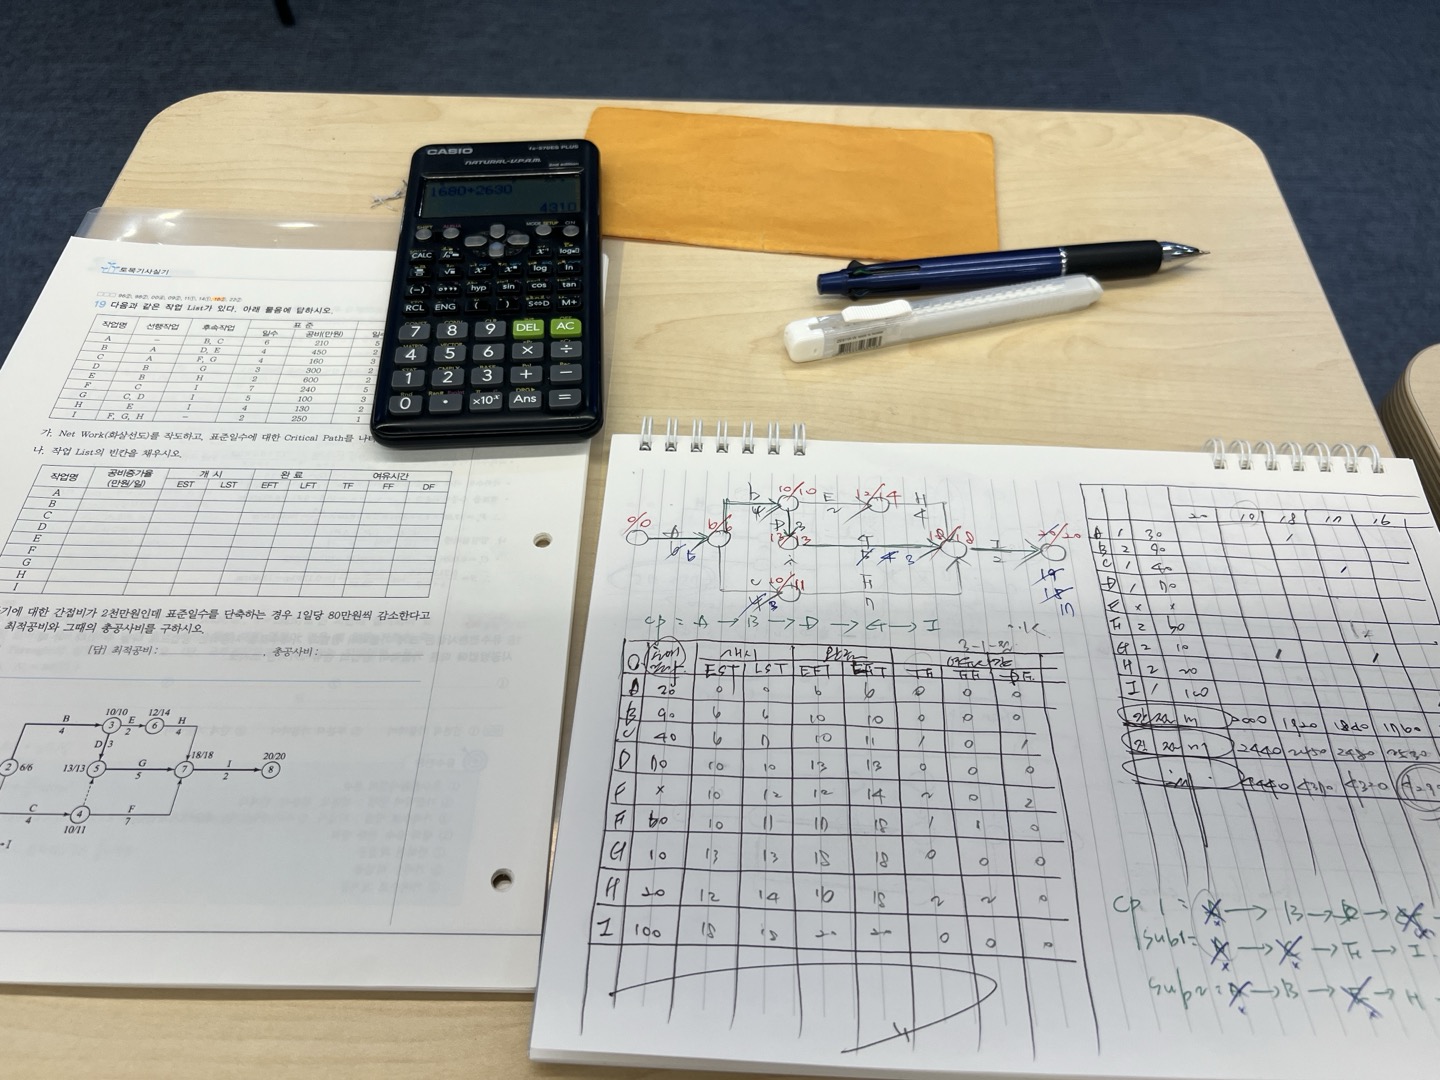 토목기사실기
19 다음과 같은 작업 List가 있다. 아래 물음에 답하시오.
작업명 선행작업 후속작업 표 준
일수 공비(만원) 일수
A - B, C 6 210 5
B A D, E 4 450 2
C A F, G 4 160 3
D B G 3 300 2
E B H 2 600 2
F C I 7 240 5
G C, D I 5 100 3
H E I 4 130 2
I F, G, H - 2 250 1
가. Net Work(화살선도)를 작도하고, 표준일수에 대한 Critical Path를 나타
나. 작업 List의 빈칸을 채우시오.
작업명 공비증가율 (만원/일) 개 시 완 료 여유시간
EST LST EFT LFT TF FF DF
A
B
C
D
E
F
G
H
I
기에 대한 간접비가 2천만원인데 표준일수를 단축하는 경우 1일당 80만원씩 감소한다고
최적공비와 그때의 총공사비를 구하시오.
[답] 최적공비 : , 총공사비 :
B 4 3 10/10 E 2 6 12/14 H 4
2 6/6 D 3
13/13 5 G 5 7 18/18 I 2 8 20/20
C 4 4 10/11 F 7
CASIO fx-570ES PLUS
NATURAL-V.P.A.M. 2nd edition
1680+2630
4310
MODE SETUP ON
CALC
log ln
(-) hyp sin cos tan
RCL ENG ( ) S⇔D M+
7 8 9 DEL AC
4 5 6 × ÷
1 2 3 + −
0 . ×10ˣ Ans =
0/0 A 6/6 10/10 E 2 12/14 H 4
13 18/18 I 2 20/20
10/11 7
19
18
17
CP = A → B → D → G → I
EST LST EFT
A 20 0 0 6 6 0 0 0
B 90 6 6 10 10 0 0 0
C 40 6 7 10 11 1 0 1
D 70 10 10 13 13 0 0 0
E × 10 12 12 14 2 0 2
F 60 10 11 17 18 1 1 0
G 10 13 13 18 18 0 0 0
H 20 12 14 16 18 2 2 0
I 100 18 18 20 20 0 0 0
20 19 18 17 16
A 1 30
B 2 90
C 1 40
D 1 70
E × ×
F 2 60
G 2 10
H 2 20
I 1 100
2000 1920 1840 1760
2440 2450 2480 2530
4440 4370 4320
CP 1 = A → B → D → G
sub1 = A → C → F → I
sub2 = A → B → E → H